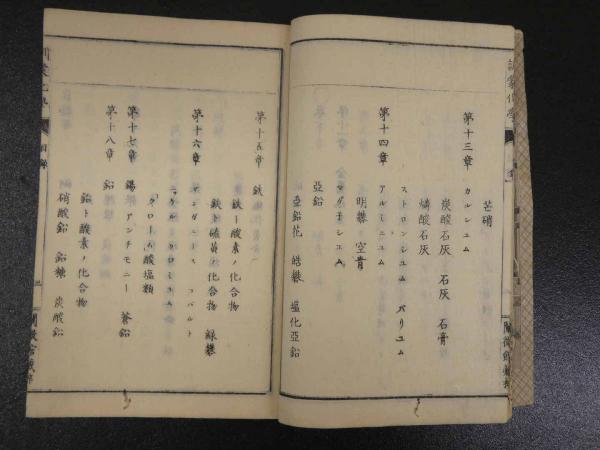 芒硝
第十三章 カルシユム
炭酸石灰 石灰 石膏
燐酸石灰
ストロンシユム バリユム
第十四章 アルミニユム
明礬 空青
マグ子シユム
亞鉛
亞鉛花 皓礬 塩化亞鉛
第十五章 鉄
鉄ト酸素ノ化合物
鉄ト硫黄ノ化合物 緑礬
第十六章 マンガニース コバルト
ニッケル クロミユム
クローム酸塩類
第十七章 錫 アンチモニー 蒼鉛
第十八章 鉛
鉛ト酸素ノ化合物
硝酸鉛 鉛糖 炭酸鉛
目録